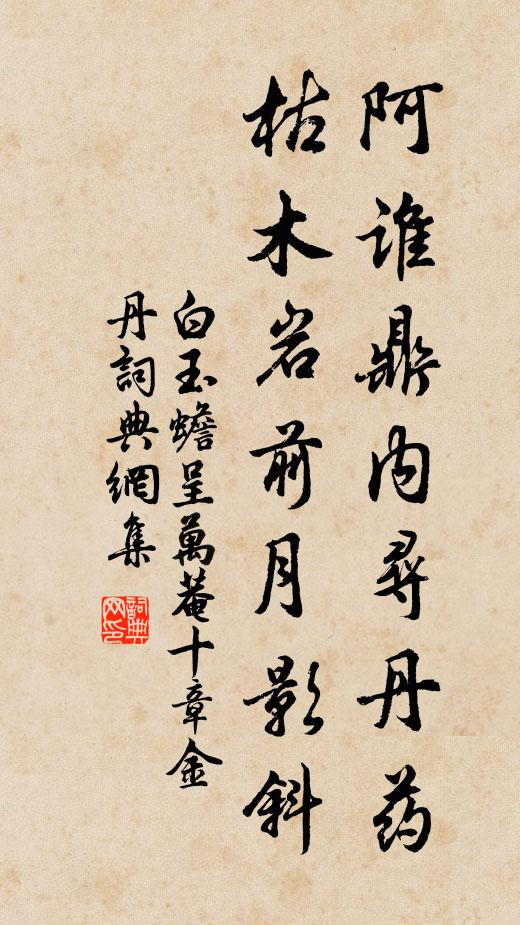 阿谁鼎内寻丹药
枯木岩前月影斜
白玉蟾呈萬菴十章金
丹詞典網集
詞典网印